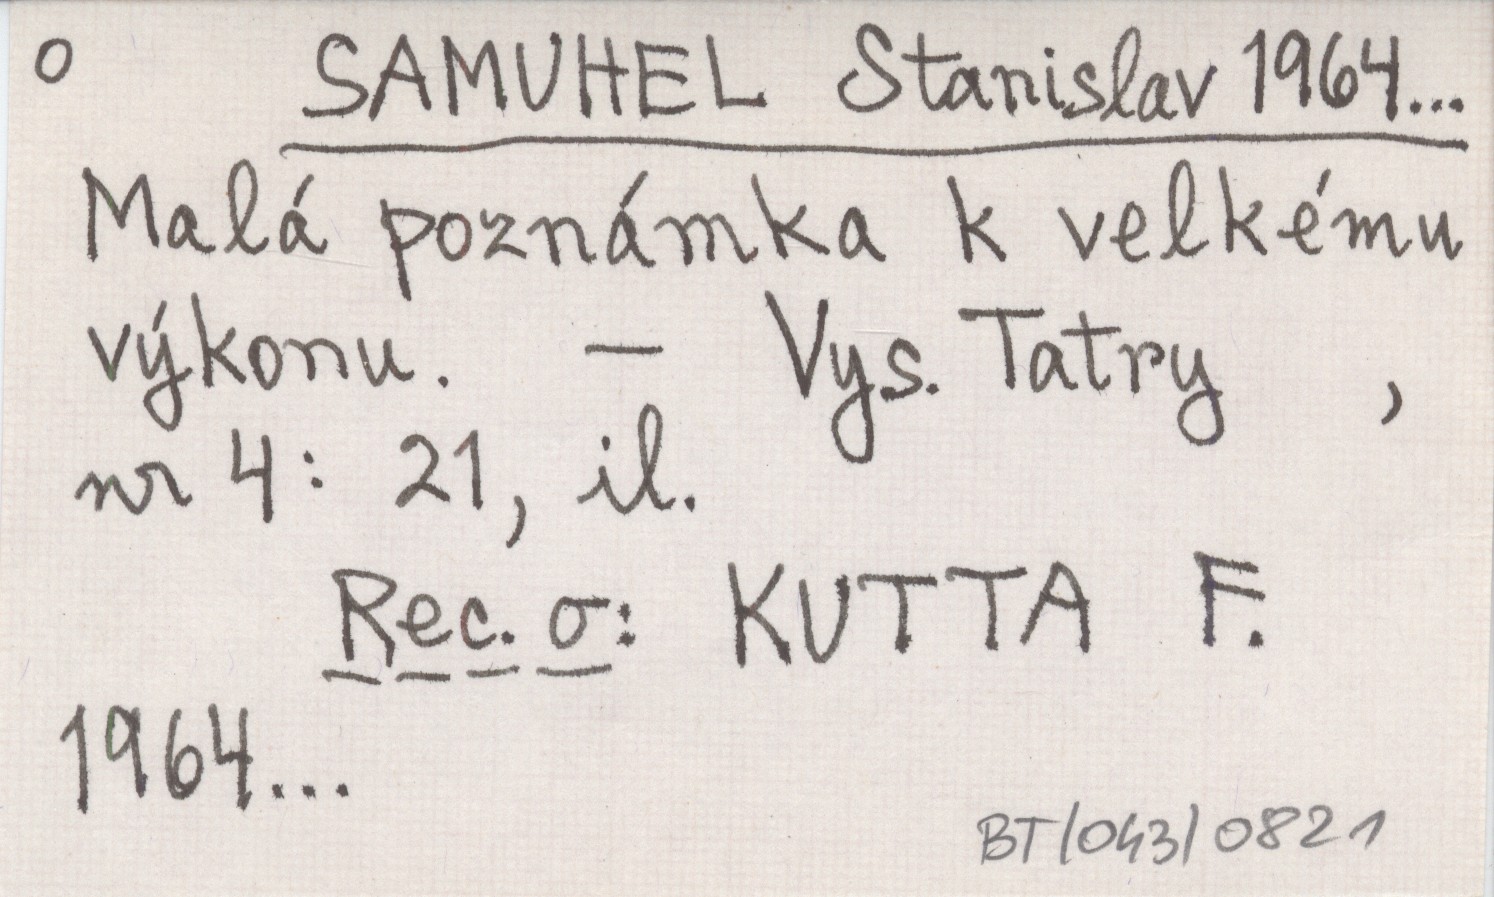 o SAMUHEL Stanislav 1964...
Malá poznámka k velkému
výkonu. — Vys. Tatry ,
nr 4: 21, il.
Rec. o: KUTTA F.
1964...
BT/043/0821